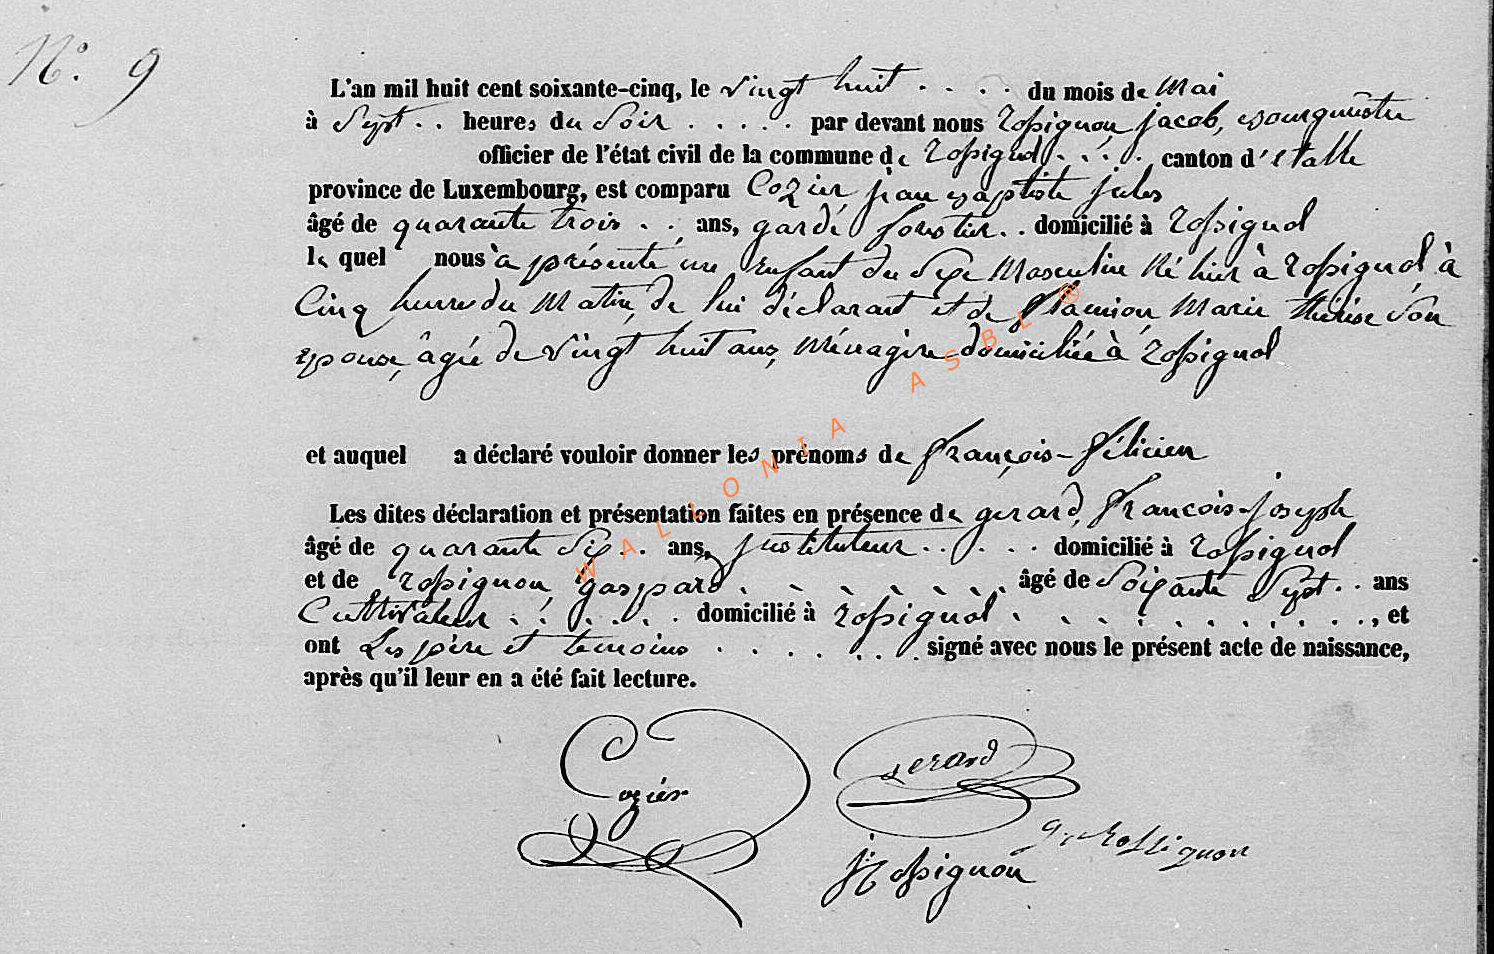 N° 9
L'an mil huit cent soixante-cinq, le vingt huit . . . . du mois de Mai
à Sept . . heures du Soir . . . . . par devant nous Rossignon, jacob, Bourgmestre
officier de l'état civil de la commune de Rossignol . . . . canton d'Etalle
province de Luxembourg, est comparu Cozier, jean Baptiste jules
âgé de quarante trois . . ans, garde forestier . . domicilié à Rossignol
le quel nous à présenté un enfant du Sexe Masculin Né hier à Rossignol à
Cinq heures du Matin, de lui déclarant et de Flamion Marie thérèse Son
épouse, âgée de vingt huit ans, Ménagère domiciliée à Rossignol
et auquel a déclaré vouloir donner les prénoms de François-Félicien
Les dites déclaration et présentation faites en présence de gerard, François-joseph
âgé de quarante Six . . ans, justituteur . . . . . . domicilié à Rossignol
et de Rossignon, gaspard . . . . . . . âgé de Soixante Sept . . ans
Cultivateur . . . . . . domicilié à Rossignol . . . . . . . . . . ., et
ont Les père et temoins . . . . . . . signé avec nous le présent acte de naissance,
après qu'il leur en a été fait lecture.
Cozier
gerard
g. Rossignon
j Rossignon
WALLONIA ASBL ®